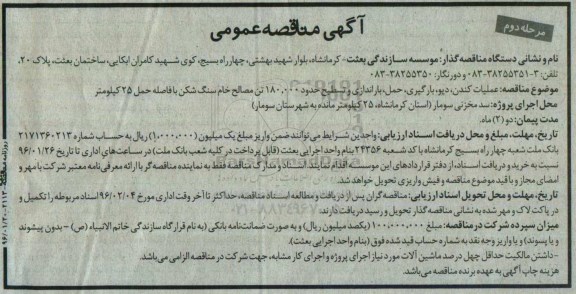 آگهی مناقصه عمومی
مرحله دوم
نام و نشانی دستگاه مناقصه گذار: موسسه سازندگی بعثت- کرمانشاه، بلوار شهید بهشتی، چهارراه بسیج، کوی شهید کامران ابکایی، ساختمان بعثت، پلاک ۲۰،
تلفن: ۲-۳۸۲۵۵۳۵۱-۰۸۳ و دورنگار: ۳۸۲۵۵۳۵۰-۰۸۳
موضوع مناقصه: عملیات کندن، دپو، بارگیری، حمل، باراندازی و تسطیح حدود ۱۸۰,۰۰۰ تن مصالح خام سنگ شکن با فاصله حمل ۲۵ کیلومتر
محل اجرای پروژه: سد مخزنی سومار (استان کرمانشاه، ۲۵ کیلومتر مانده به شهرستان سومار)
مدت پیمان: دو (۲) ماه.
تاریخ، مهلت، مبلغ و محل دریافت اسناد ارزیابی: واجدین شرایط می توانند ضمن واریز مبلغ یک میلیون (۱,۰۰۰,۰۰۰) ریال به حساب شماره ۲۱۷۱۳۶۰۲۱۳
بانک ملت شعبه چهار راه بسیج کرمانشاه با کد شعبه ۲۴۳۵۶ بنام واحد اجرایی بعثت (قابل پرداخت در کلیه شعب بانک ملت) در ساعت های اداری تا تاریخ ۹۶/۰۱/۲۶
نسبت به خرید و دریافت اسناد، از دفتر قراردادهای این موسسه اقدام نمایند. اسناد و مدارک مناقصه فقط به نماینده مناقصه گر با ارائه معرفی نامه معتبر شرکت با مهر و
امضای مجاز و با قید موضوع مناقصه و فیش واریزی تحویل خواهد شد.
تاریخ، مهلت و محل تحویل اسناد ارزیابی: مناقصه گران پس از دریافت و مطالعه اسناد مناقصه، حداکثر تا آخر وقت اداری مورخ ۹۶/۰۲/۰۴ اسناد مربوطه را تکمیل و
در پاکت لاک و مهر شده به نشانی مناقصه گذار تحویل و رسید دریافت دارند.
میزان سپرده شرکت در مناقصه: مبلغ ۱۰۰,۰۰۰,۰۰۰ (یکصد میلیون ریال) و به صورت ضمانت نامه بانکی (به نام قرارگاه سازندگی خاتم الانبیاء (ص) - بدون پیشوند
و یا پسوند) و یا واریز وجه نقد به شماره حساب قید شده فوق (بنام واحد اجرایی بعثت).
-داشتن مالکیت حداقل چهل درصد ماشین آلات مورد نیاز اجرای پروژه و اجرای کار مشابه، جهت شرکت در مناقصه الزامی می باشد.
هزینه چاپ آگهی به عهده برنده مناقصه می باشد.